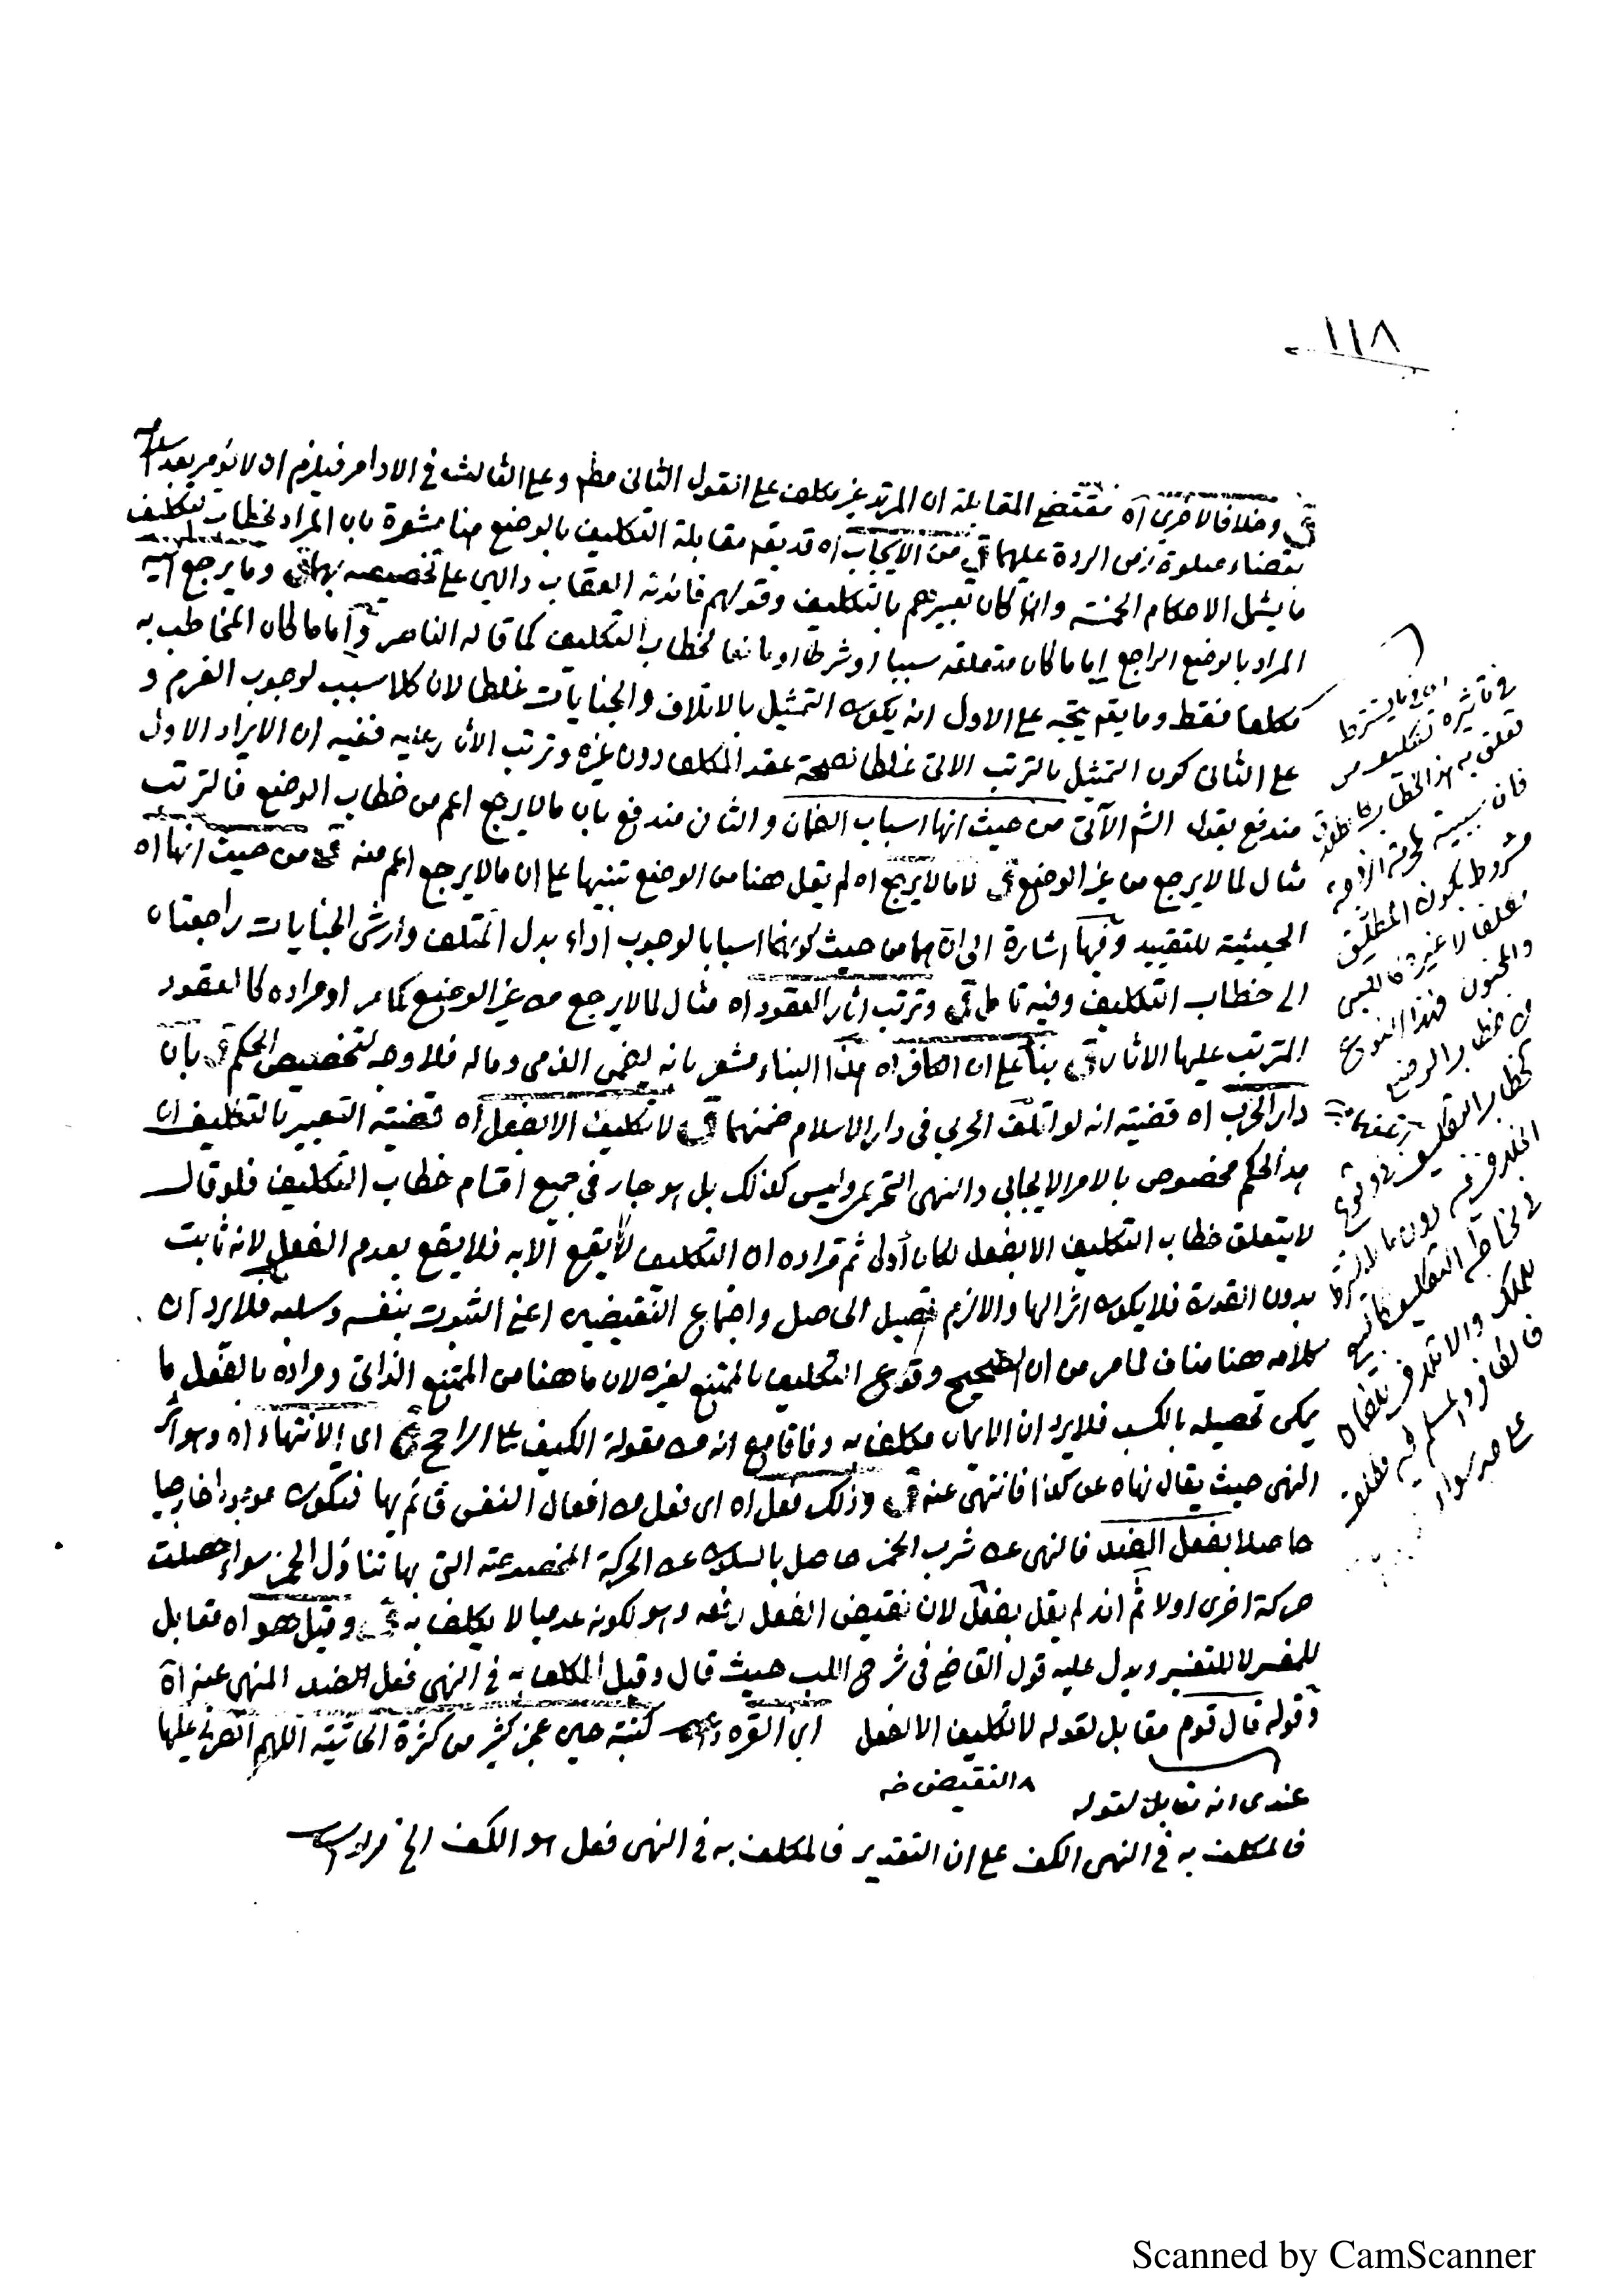 ١١٨
ق وخلافا لاخرى اه مقتضى المقابلة ان المرتد غير مكلف على القول الثانى مطم وعلى الثالث فى الاوامر فيلزم ان لا نؤمر بعد
بقضاء صلوة زمن الردة عليهما ق من الايجاب اه قد يقم مقابلة التكليف بالوضع هنا مشعرة بان المراد بخطاب التكليف
ما يشمل الاحكام الخمسة وان كان تعبيرهم بالتكليف وقولهم فائدته العقاب دالين على تخصيصه بهما ق وما يرجع اليه
المراد بالوضع الراجع اما ما كان متعلقه سببا او شرطا او مانعا لخطاب التكليف كما قاله الناصر واما ما كان المخاطب به
مكلفا فقط وما يقم يتجه على الاول انه يكون التمثيل بالاتلاف والجنايات غلطا لان كلا سبب لوجوب الغرم و
على الثانى كون التمثيل بالترتب الاتى غلطا لصحة عقد المكلف دون غيره وترتب الاثار عليه ففيه ان الايراد الاول
مندفع بقول الشم الآتى من حيث انها اسباب الضمان والثانى مندفع بان ما لا يرجع اعم من خطاب الوضع فالترتب
مثال لما لا يرجع من غير الوضع ق لا ما لا يرجع اه لم يقل هنا من الوضع تنبيها على ان ما لا يرجع اعم منه ق من حيث انها اه
الحيثية للتقييد وفيها اشارة الى انهما من حيث كونهما اسبابا لوجوب اداء بدل المتلف وارش الجنايات راجعتان
الى خطاب التكليف وفيه تامل ق وترتب اثار العقود اه مثال لما لا يرجع من غير الوضع كما مر او مراده كالعقود
المترتب عليها الاثار ق بناء على ان الكافر اه هذا البناء مشعر بانه يضمن الذمى وماله فلا وجه لتخصيص الحكم ق بان
دار الحرب اه قضيته انه لو اتلف الحربى فى دار الاسلام ضمنهما ق لا تكليف الا بفعل اه قضية التعبير بالتكليف ان
هذا الحكم مخصوص بالامر الايجابى والنهى التحريمى وليس كذلك بل هو جار فى جميع اقسام خطاب التكليف فلو قال
لا يتعلق خطاب التكليف الا بفعل لكان أولى ثم مراده ان التكليف لا يقع الا به فلا يقع بعدم الفعل لانه ثابت
بدون القدرة فلا يكون اثرا لها والا لزم تحصيل الحاصل واجتماع النقيضين اعنى الثبوت بنفسه وسلبه فلا يرد ان
كلامه هنا مناف لما مر من ان الصحيح وقوع التكليف بالممتنع لغيره لان ما هنا من الممتنع الذاتى ومراده بالفعل ما
يمكن تحصيله بالكسب فلا يرد ان الايمان مكلف به وفاقا مع انه من مقولة الكيف على الراجح ق اى الانتهاء اه وهو اثر
النهى حيث يقال نهاه عن كذا فانتهى عنه ق وذلك فعل اه اى فعل من افعال النفس قائم بها فيكون موجودا خارجيا
حاصلا بفعل الضد فالنهى عن شرب الخمر حاصل بالسكون عن الحركة المخصوصة التى بها تناول الخمر سواء حصلت
حركة اخرى اولا ثم انه لم يقل بفعل لان نقيض الفعل رفعه وهو لكونه عدميا لا يكلف به ق وقيل هو اه مقابل
للمفسر لا للتفسير ويدل عليه قول القاضى فى شرح اللب حيث قال وقيل المكلف به فى النهى فعل الضد المنهى عنه اه
وقوله قال قوم مقابل لقوله لا تكليف الا بفعل ابن القره داغى كتبته حين عجز كثير من كثرة الحاشية اللهم انصرنا عليها
عندى انه مقابل لقوله
النقيض خه
فالمكلف به فى النهى الكف على ان التقدير فالمكلف به فى النهى فعل هو الكف الخ
فى تاثيره تكليف من
تعلق به هذا الخطاب كالطلاق
فان سببيته لحرمة الزوجة
مشروط بكون المطلق
مكلفا لا غيره كالصبى
والمجنون فهذا النوع
من خطاب الوضع
كخطاب التكليف فى وقوع
الخلاف فيه دون ما لا يشترط
فى خطابه التكليف كالبيع
للملك والاتلاف للضمان
فالكافر والمسلم فيه مطلقا
على حد سواء
Scanned by CamScanner